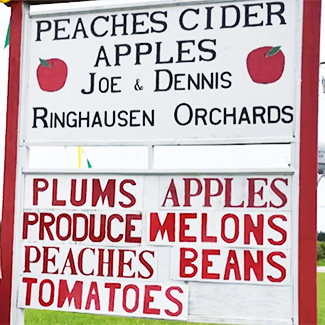 PEACHES CIDER
APPLES
JOE & DENNIS
RINGHAUSEN ORCHARDS
PLUMS APPLES
PRODUCE MELONS
PEACHES BEANS
TOMATOES